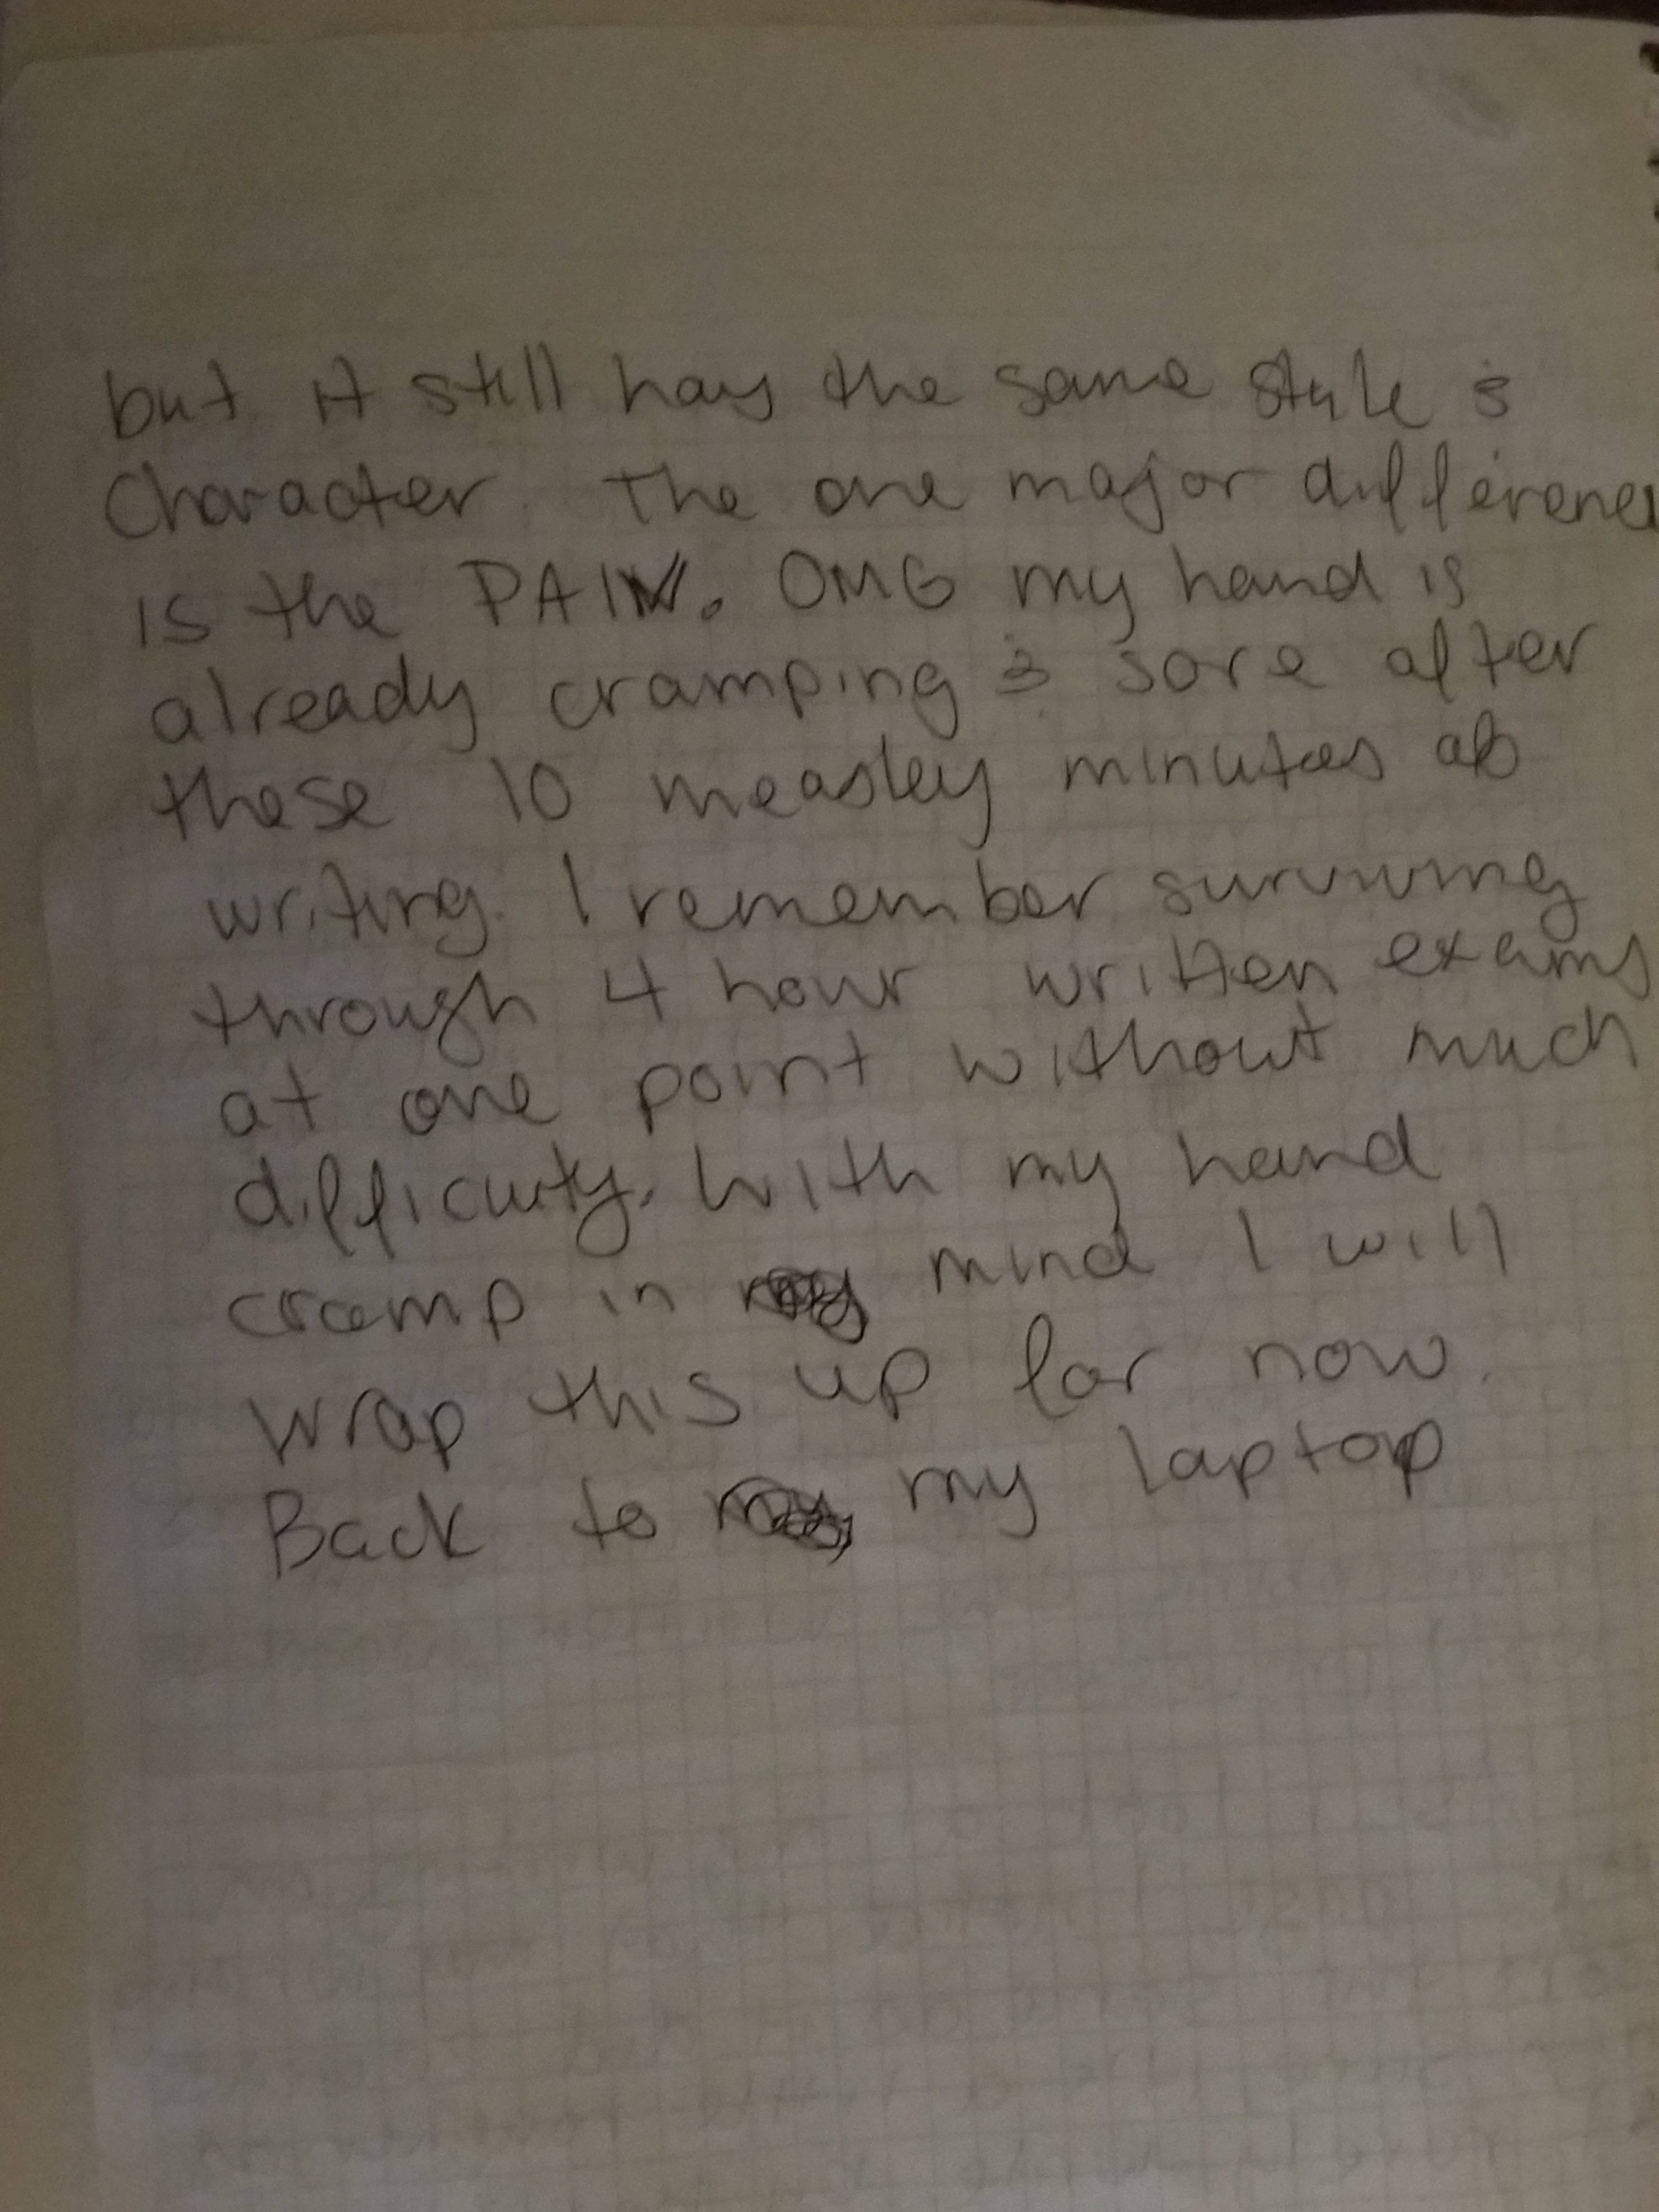 but it still has the same style &
Character. The one major difference
is the PAIN. OMG my hand is
already cramping & sore after
these 10 measley minutes of
writing. I remember surviving
through 4 hour written exams
at one point without much
difficulty. With my hand
cramp in mind I will
wrap this up for now.
Back to my laptop